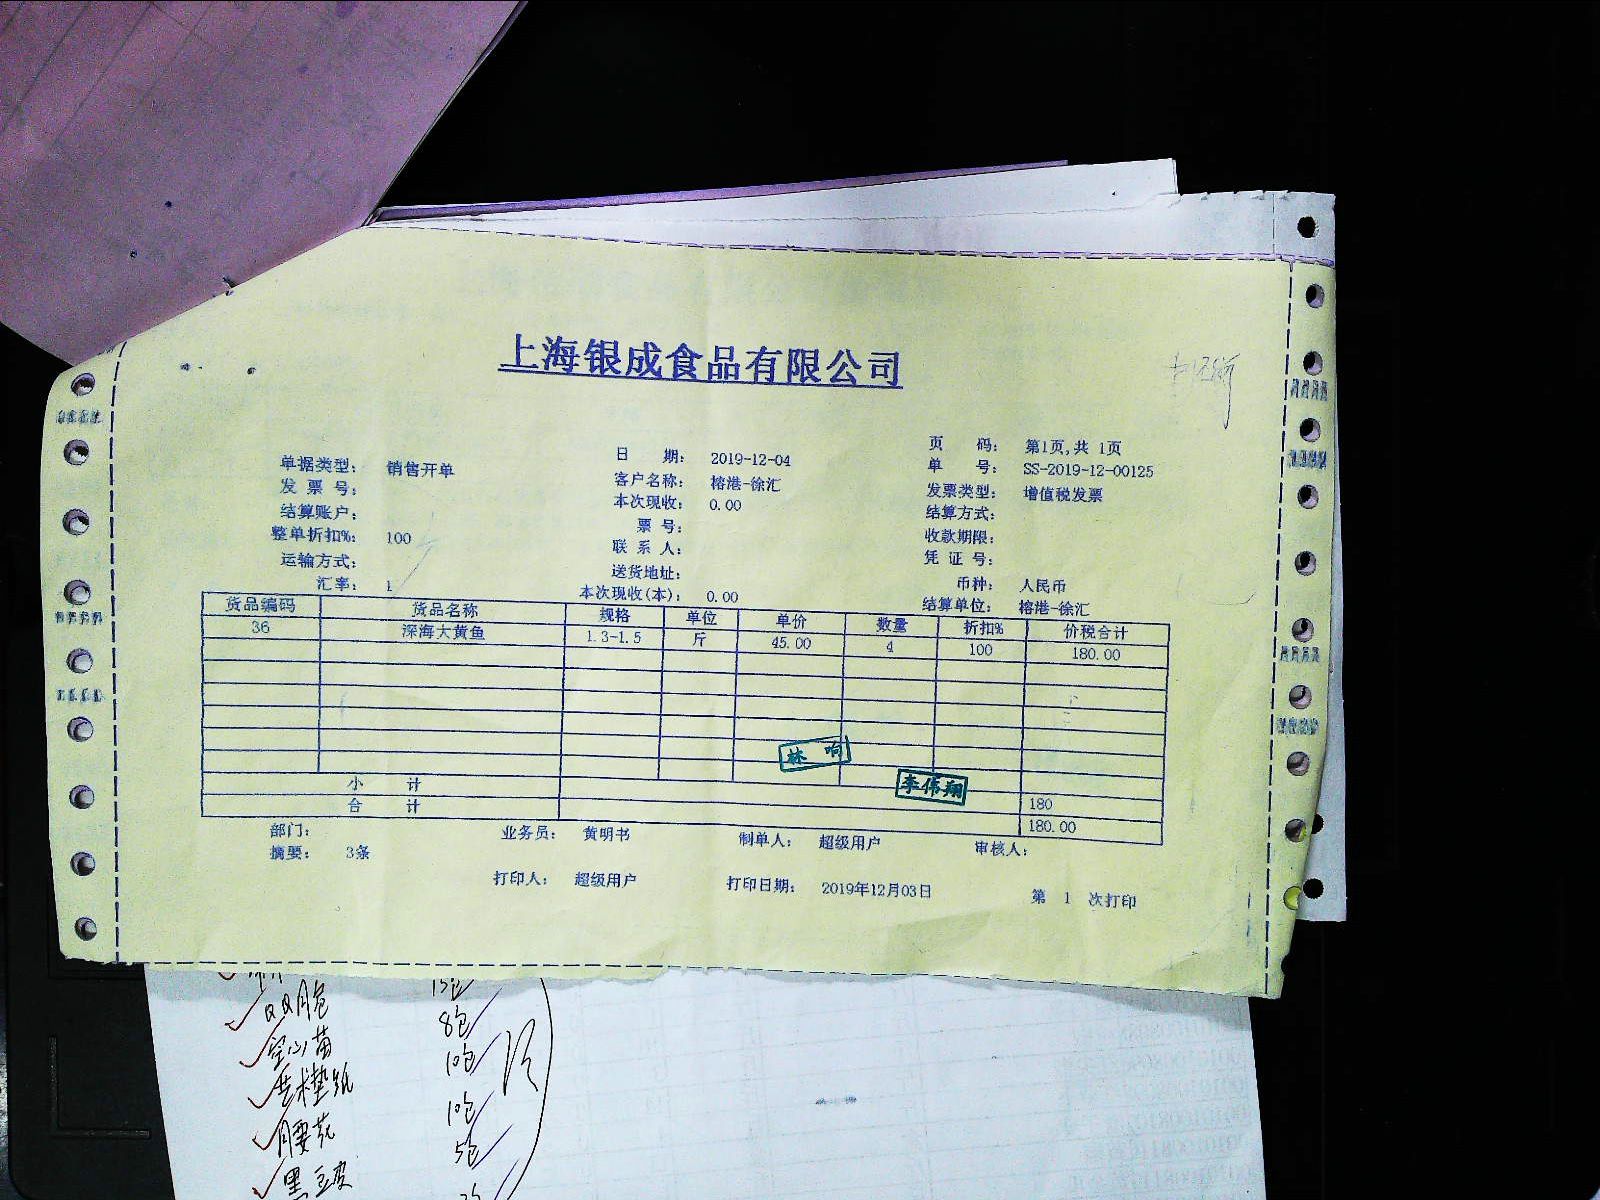 上海银成食品有限公司
页 码： 第1页,共 1页
日 期： 2019-12-04
单 号： SS-2019-12-00125
单据类型： 销售开单
客户名称： 榕港-徐汇
发票类型： 增值税发票
发 票 号：
本次现收： 0.00
结算方式：
结算账户：
票 号：
收款期限：
整单折扣%： 100
联 系 人：
凭 证 号：
运输方式：
送货地址：
币种： 人民币
汇率： 1
本次现收(本)： 0.00
结算单位： 榕港-徐汇
货品编码 货品名称 规格 单位 单价 数量 折扣% 价税合计
36 深海大黄鱼 1.3-1.5 斤 45.00 4 100 180.00
林 响
李伟翔
小 计 180
合 计 180.00
部门： 业务员： 黄明书 制单人： 超级用户 审核人：
摘要： 3条
打印人： 超级用户 打印日期： 2019年12月03日 第 1 次打印
15包
8包
空心苗 10包
10包
5包
黑豆